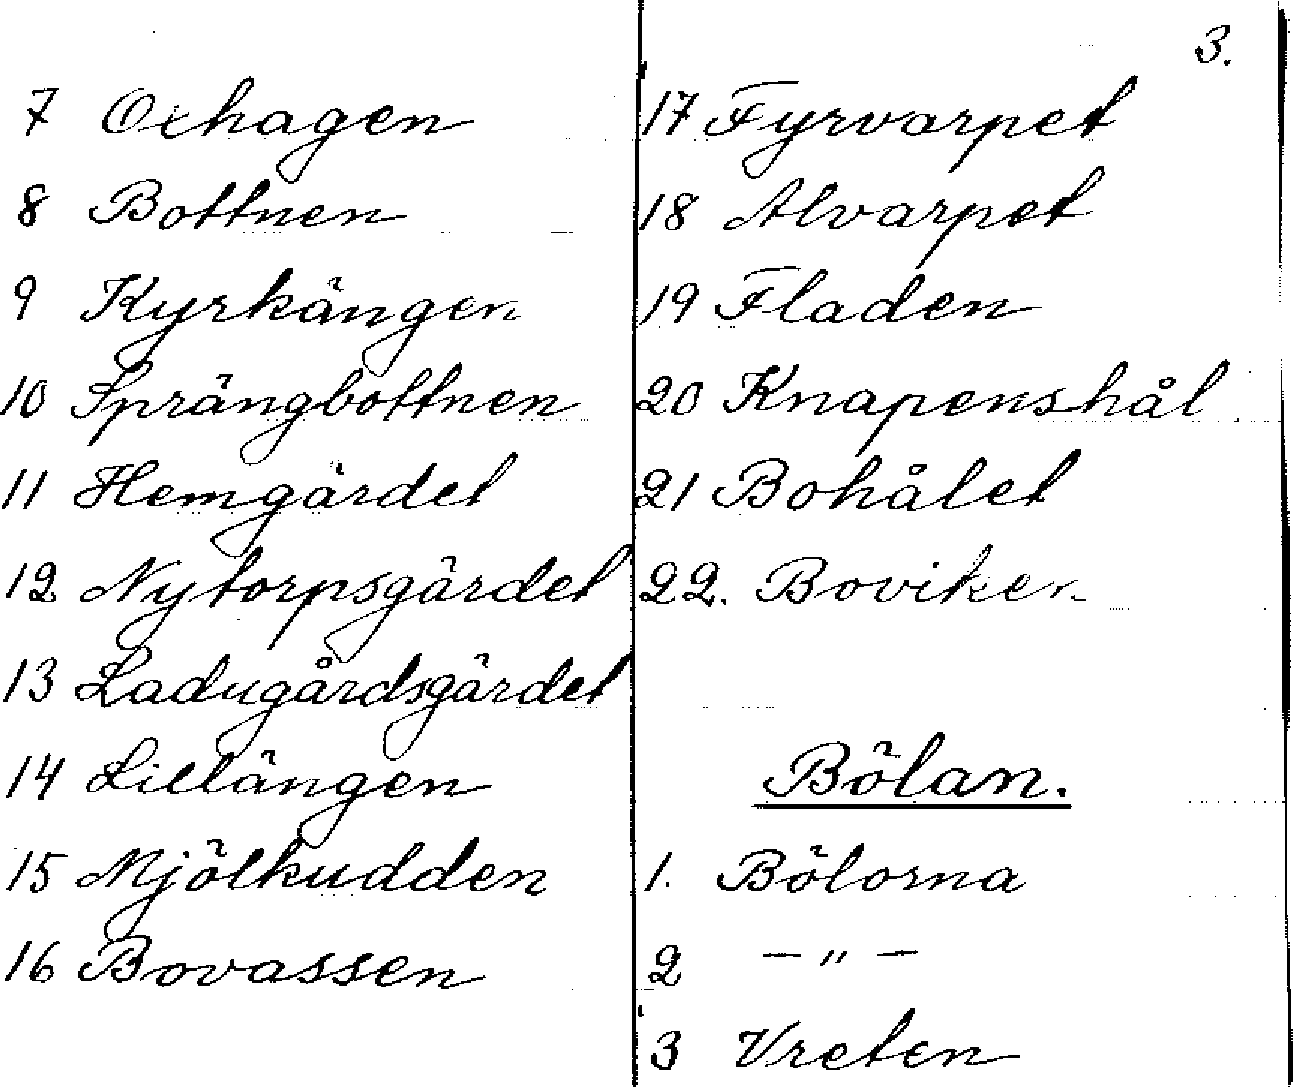 3.
7 Oxhagen
8 Bottnen
9 Kyrkängen
10 Sprängbottnen
11 Hemgärdet
12 Nytorpsgärdet
13 Ladugårdsgärdet
14 Lillängen
15 Mjölkudden
16 Bovassen
17 Fyrvarpet
18 Alvarpet
19 Fladen
20 Knapenshål
21 Bohålet
22. Boviken
Bölan.
1. Bölorna
2 — " —
3 Vreten